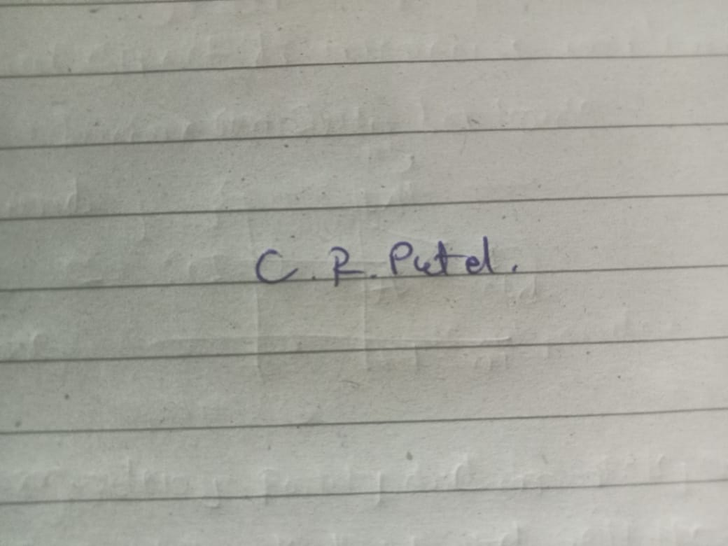 C. R. Patel.